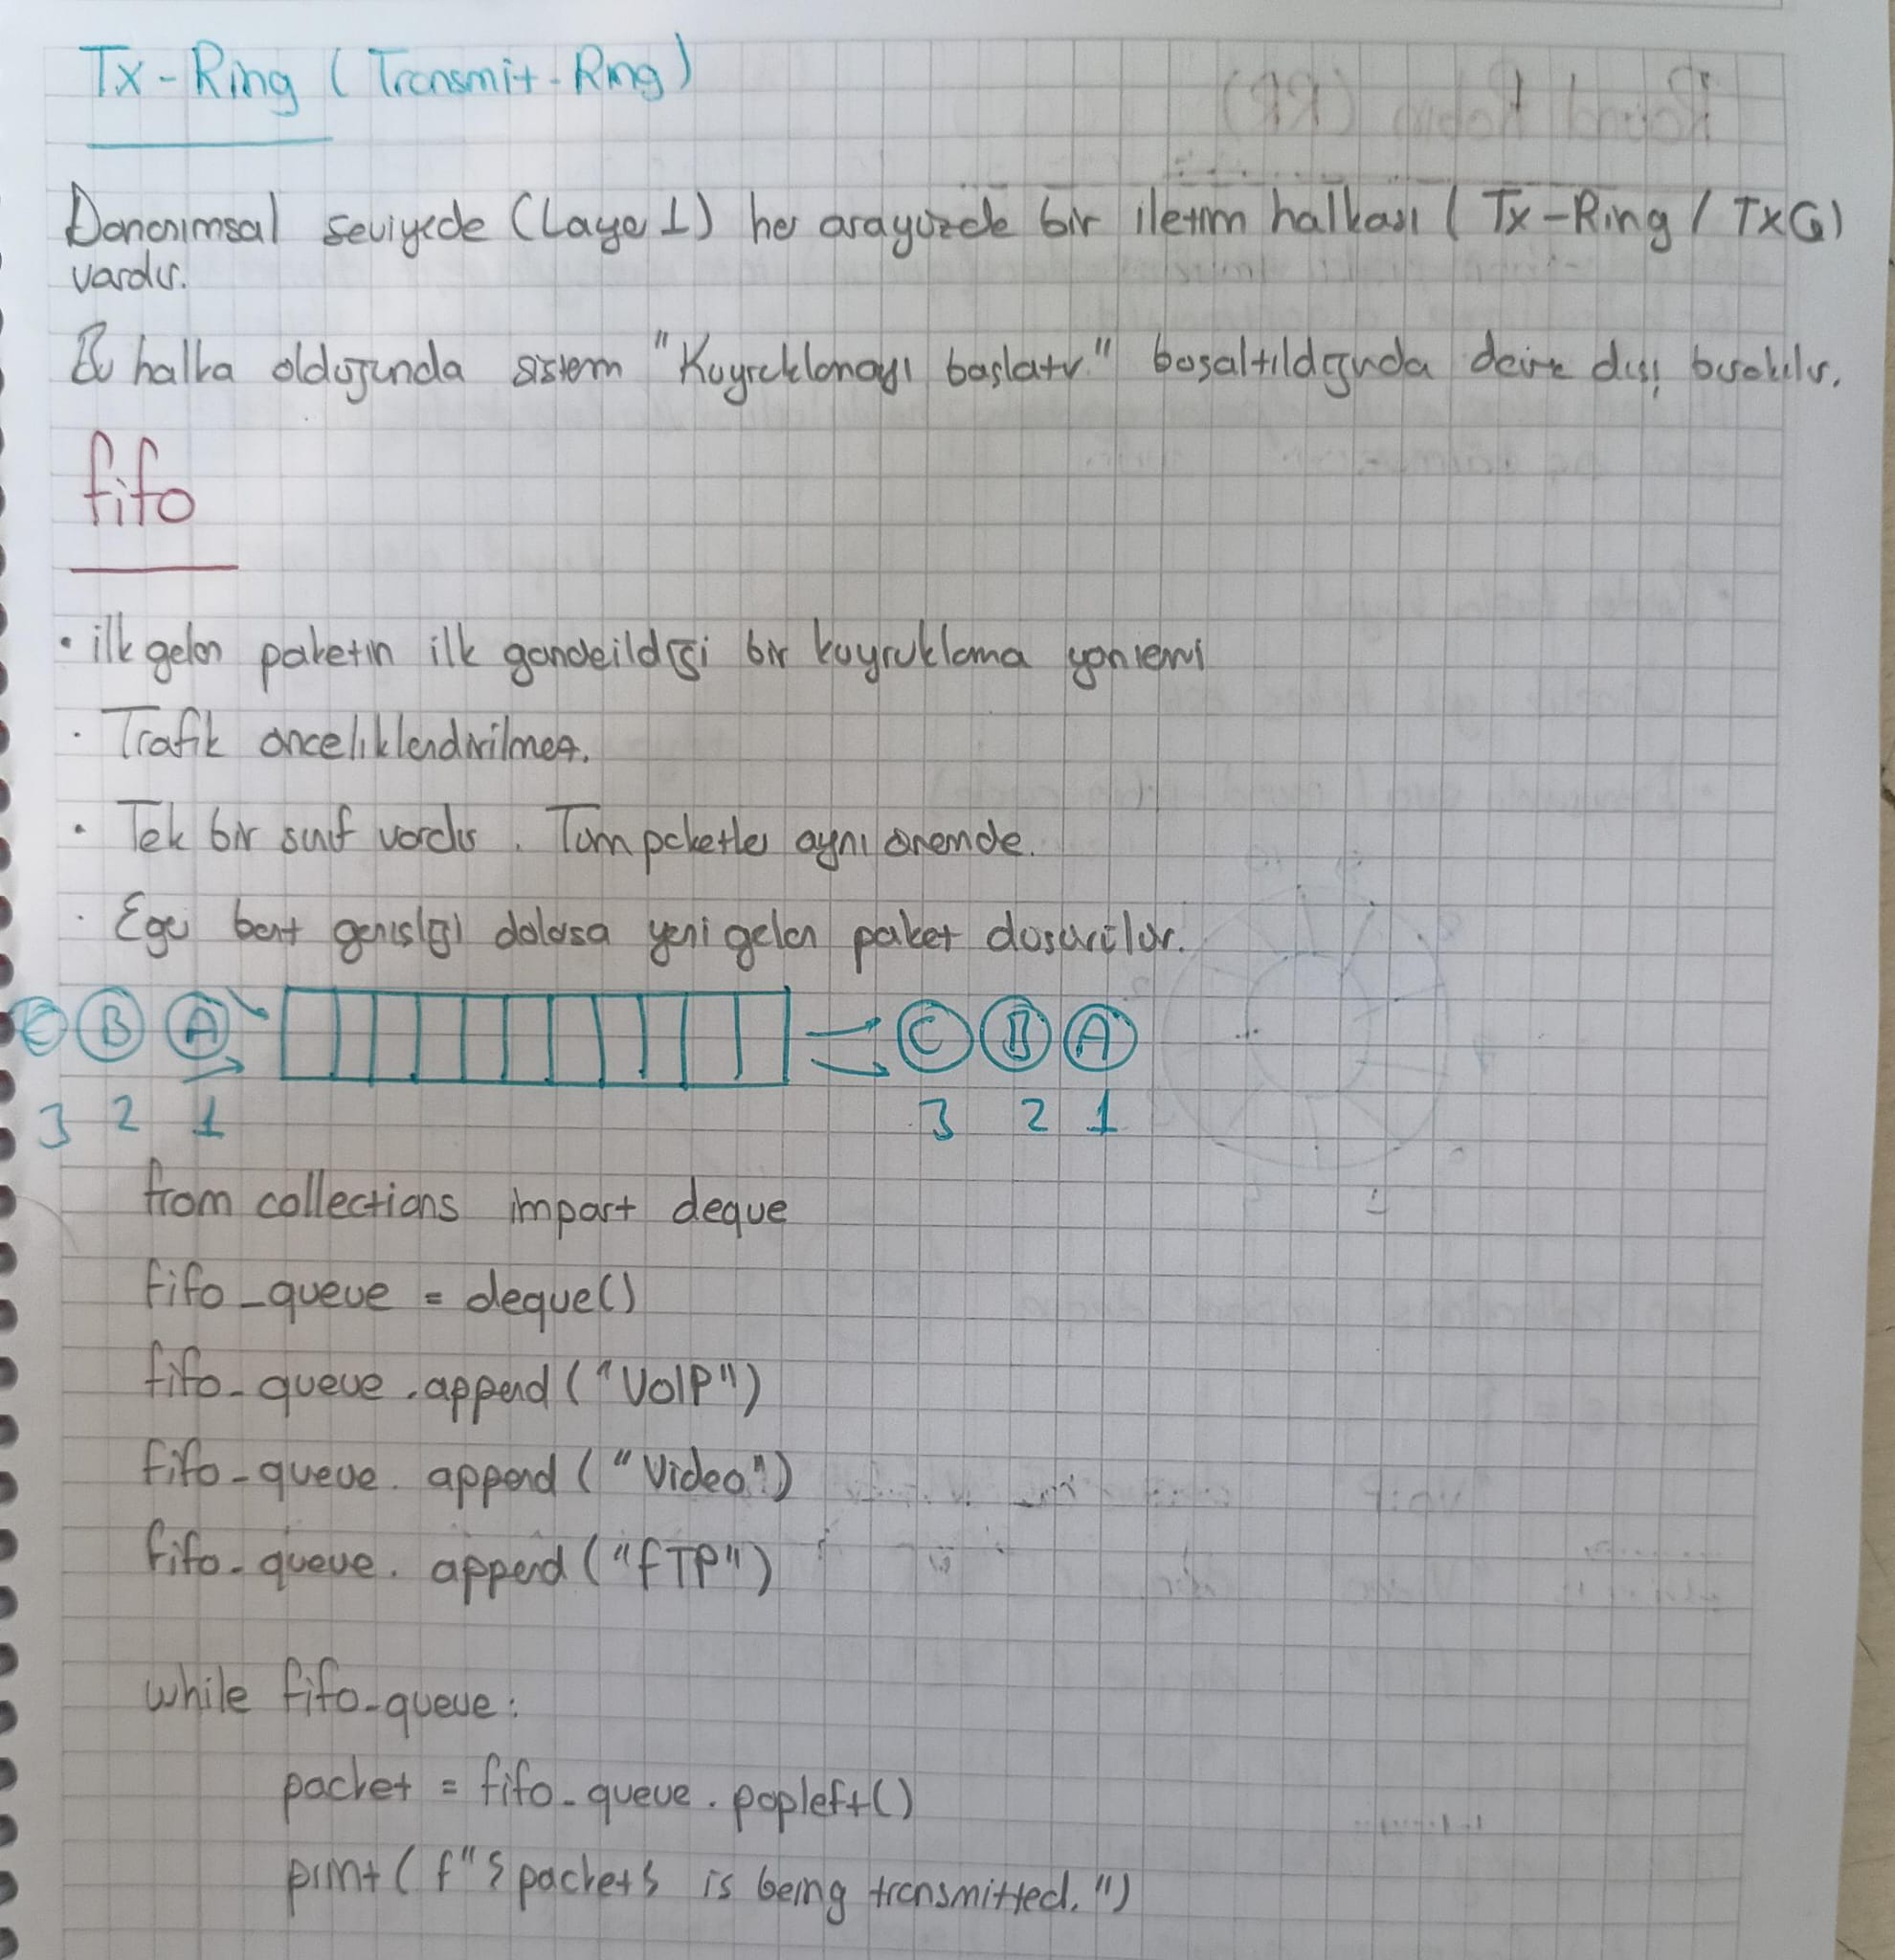 Tx-Ring (Transmit-Ring)
Donanımsal seviyede (Laye 1) her arayüzde bir iletim halkası ( Tx-Ring / TxQ)
vardır.
Bu halka olduğunda sistem "Kuyruklamayı başlatır" boşaltıldığında devre dışı bırakılır.
fifo
• ilk gelen paketin ilk gönderildiği bir kuyruklama yöntemi
· Trafik önceliklendirilmez.
• Tek bir sınıf vardır. Tüm paketler aynı önemde.
· Eğer bant genişliği dolarsa yeni gelen paket düşürülür.
C B A C B A
3 2 1 3 2 1
from collections import deque
fifo_queue = deque()
fifo_queue.append("VoIP")
fifo_queue.append("Video")
fifo_queue.append("FTP")
while fifo_queue:
packet = fifo_queue.popleft()
print(f"{packet} is being transmitted.")